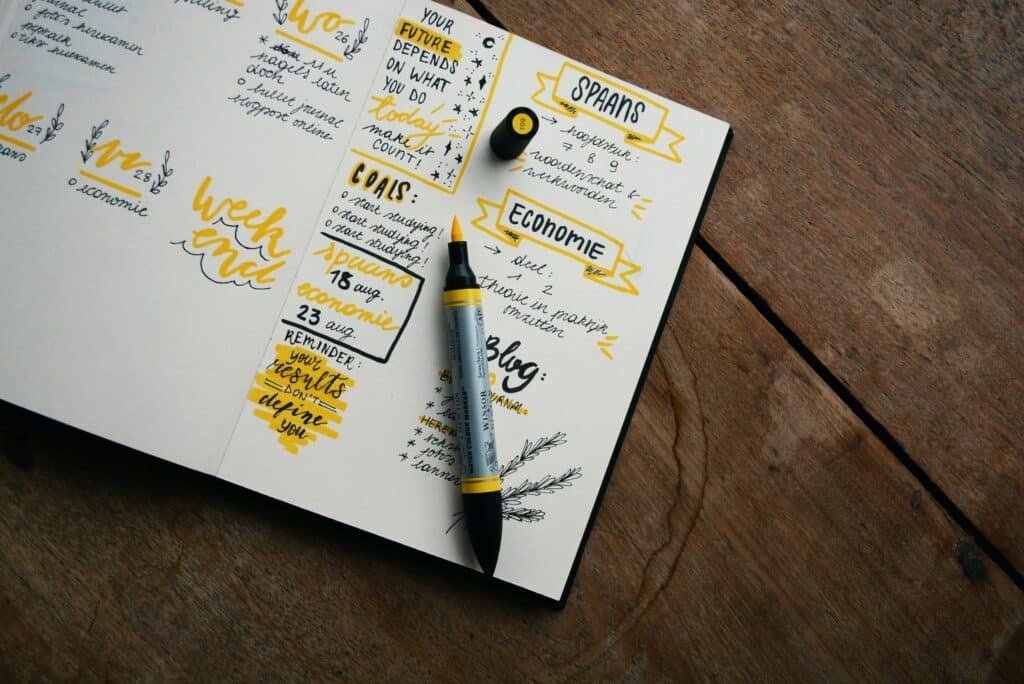 journal
o foto's herexamen
o tekst herexamen
wo 26
* nagels laten
doen
o bullet journal
blogpost online
do 27
vr 28
o economie
week
end
YOUR
FUTURE
DEPENDS
ON WHAT
YOU DO
today!
make it
COUNT!
GOALS:
o start studying!
o start studying!
o start studying!
spaans
18 aug.
economie
23 aug.
REMINDER:
your
results
DON'T
define
you
SPAANS
→ hoofdstuk:
7 8 9
woordenschat &
werkwoorden
109
ECONOMIE
→ deel:
1 2
theorie in praktijk
omzetten
Blog:
* foto's
* banner
WINSOR